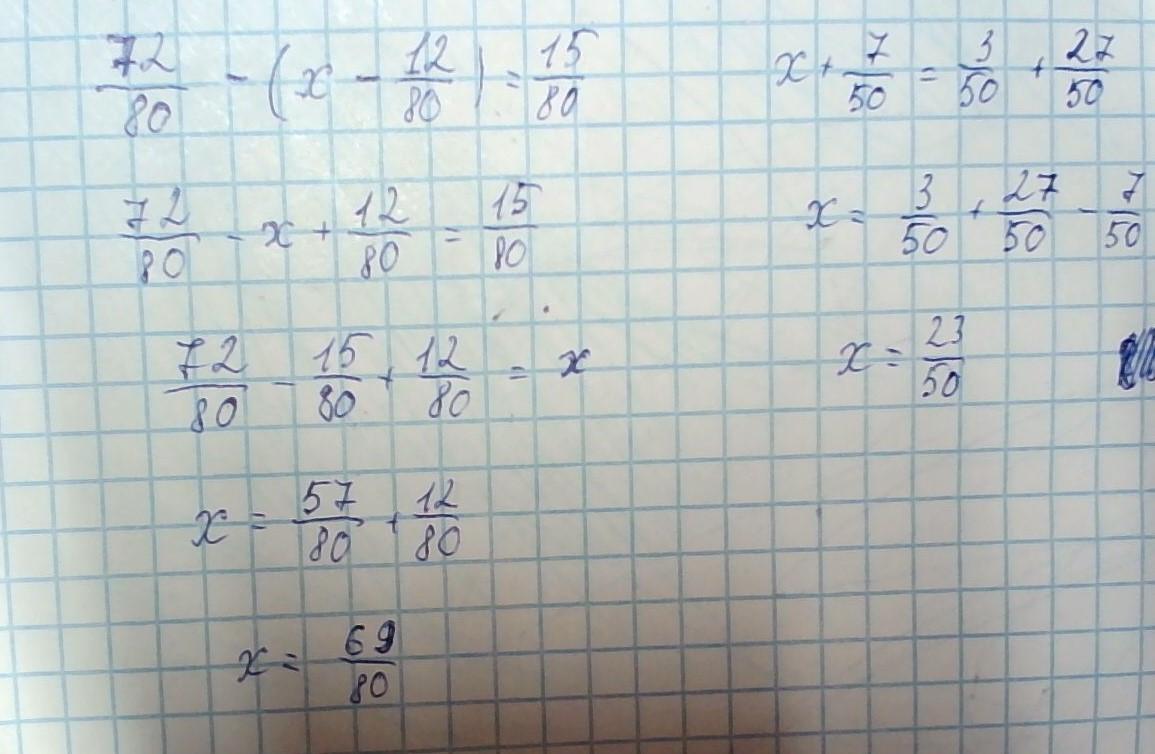 72/80 - (x - 12/80) = 15/80
72/80 - x + 12/80 = 15/80
72/80 - 15/80 + 12/80 = x
x = 57/80 + 12/80
x = 69/80
x + 7/50 = 3/50 + 27/50
x = 3/50 + 27/50 - 7/50
x = 23/50